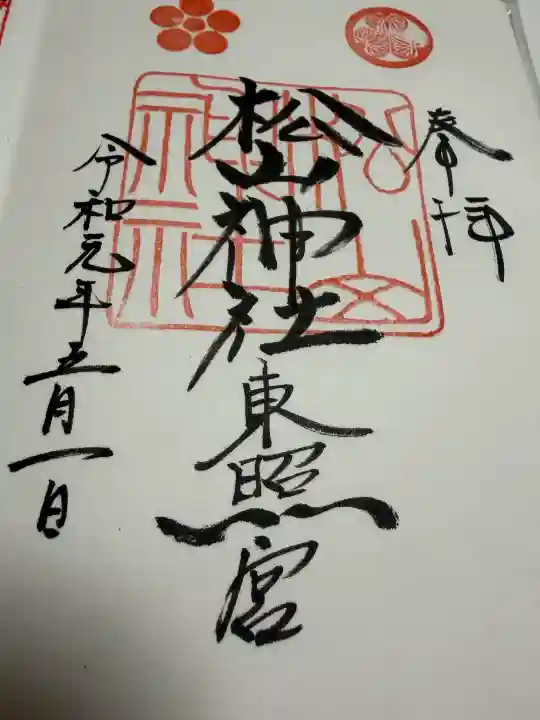 奉拝
松山神社東照宮
令和元年五月一日